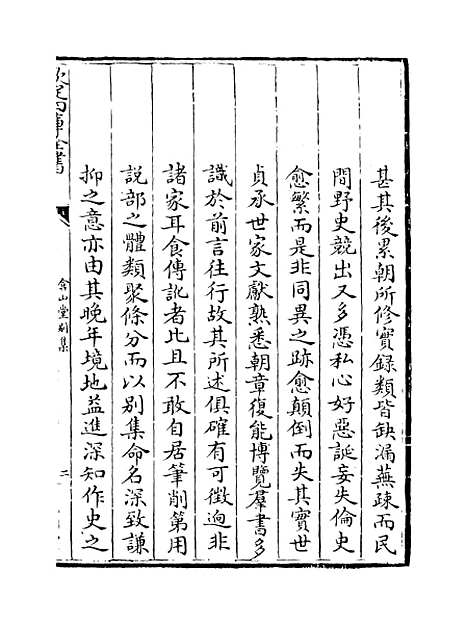 甚其後累朝所修實録類皆缺漏蕪疎而民
間野史競出又多憑私心好惡誕妄失倫史
愈繁而是非同異之跡愈顛倒而失其實世
貞承世家文獻熟悉朝章復能博覽羣書多
識於前言往行故其所述俱確有可徴逈非
諸家耳食傳訛者比且不敢自居筆削第用
説部之體類聚條分而以别集命名深致謙
抑之意亦由其晚年境地益進深知作史之
欽定四庫全書
弇山堂别集
二